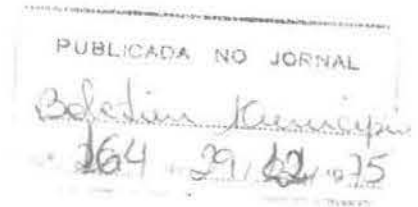 PUBLICADA NO JORNAL
Boletim Municipi
264 29/12/75